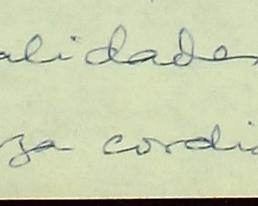 alidades
za cordia